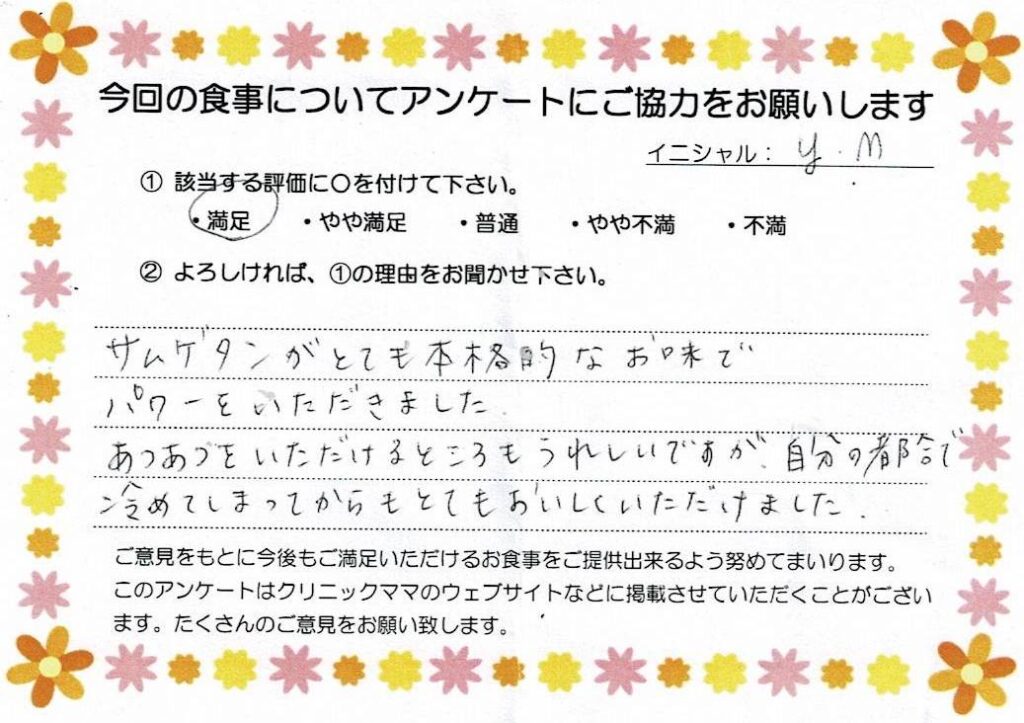 今回の食事についてアンケートにご協力をお願いします
イニシャル： y.m
① 該当する評価に〇を付けて下さい。
・満足 ・やや満足 ・普通 ・やや不満 ・不満
② よろしければ、①の理由をお聞かせ下さい。
サムゲタンがとても本格的なお味で
パワーをいただきました.
あつあつをいただけるところもうれしいですが、自分の都合で
冷めてしまってからもとてもおいしくいただけました.
ご意見をもとに今後もご満足いただけるお食事をご提供出来るよう努めてまいります。
このアンケートはクリニックママのウェブサイトなどに掲載させていただくことがござい
ます。たくさんのご意見をお願い致します。